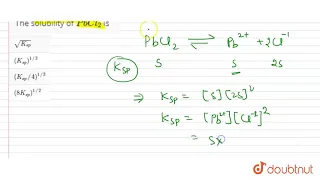 The solubility of PbCl₂ is
√Ksp
(Ksp)^1/3
(Ksp/4)^1/3
(8Ksp)^1/2
PbCl₂ ⇌ Pb²⁺ + 2Cl⁻¹
Ksp S S 2S
⇒ Ksp = [S][2S]²
Ksp = [Pb²⁺][Cl⁻¹]²
= Sx
doubtnut